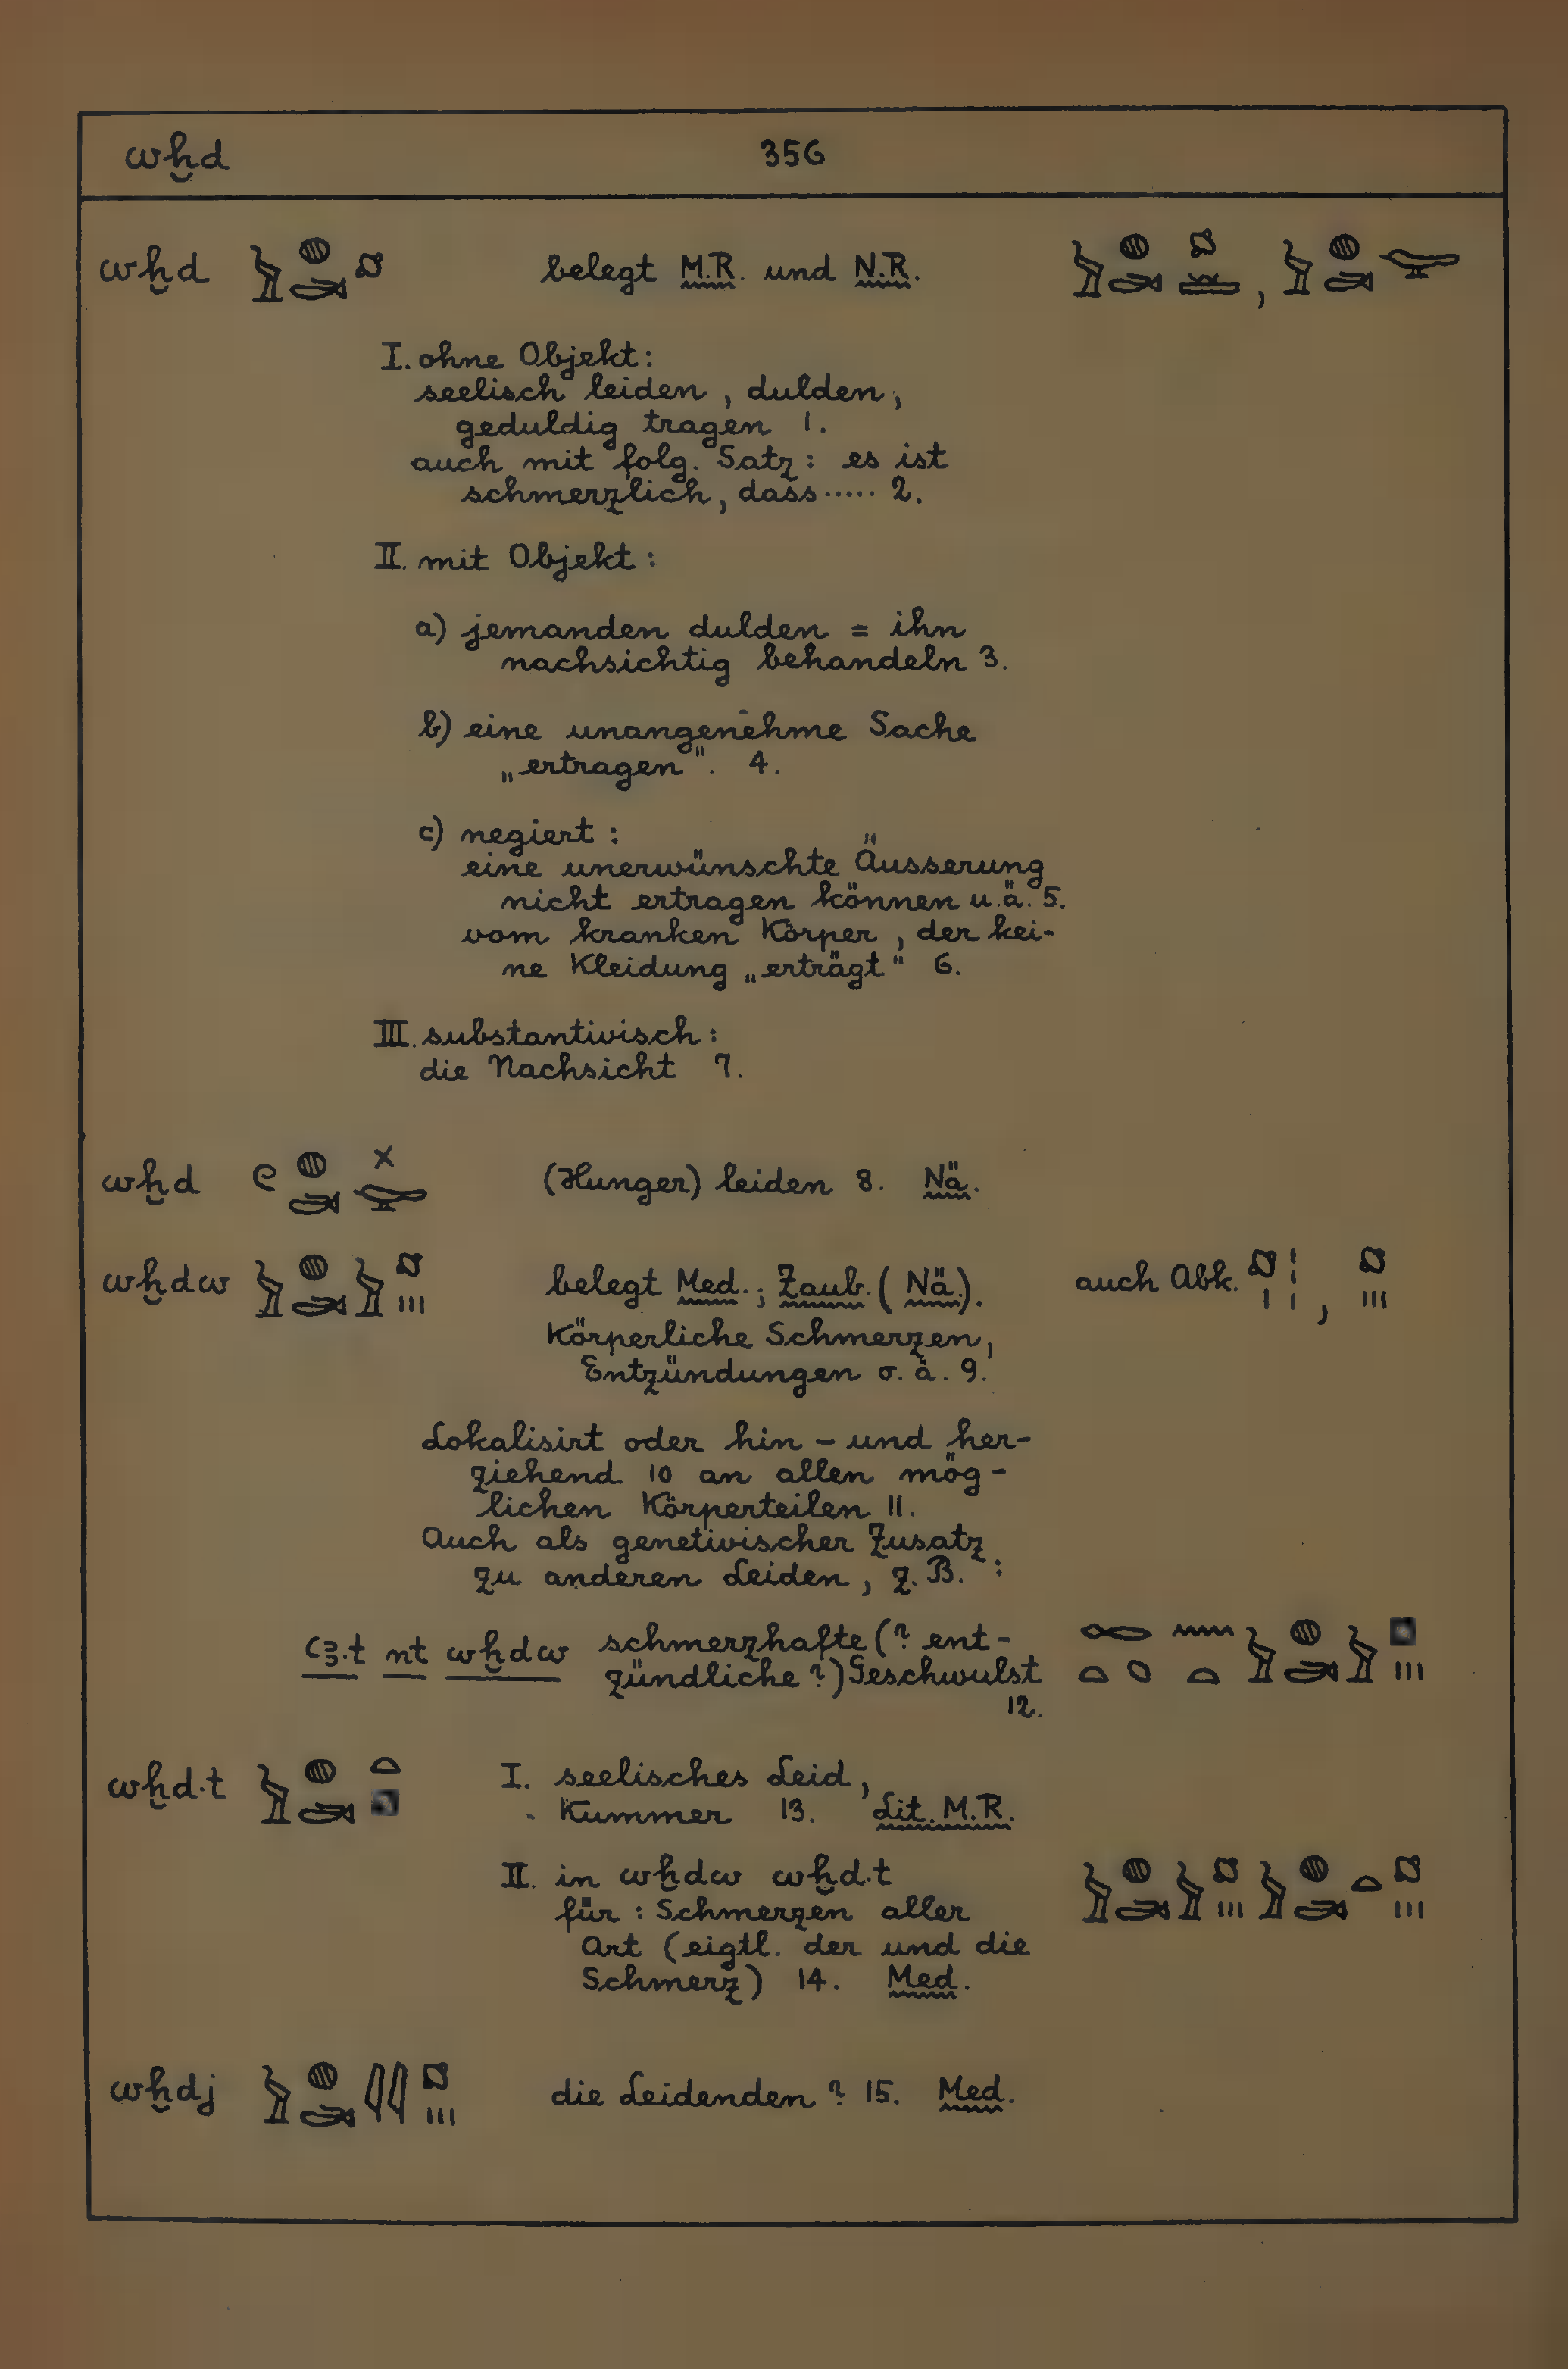 wḫd 356
wḫd belegt M.R. und N.R.
I. ohne Objekt:
seelisch leiden, dulden,
geduldig tragen 1.
auch mit folg. Satz: es ist
schmerzlich, dass ..... 2.
II. mit Objekt:
a) jemanden dulden = ihn
nachsichtig behandeln 3.
b) eine unangenehme Sache
„ertragen". 4.
c) negiert:
eine unerwünschte Äusserung
nicht ertragen können u.ä. 5.
vom kranken Körper, der kei-
ne Kleidung „erträgt" 6.
III. substantivisch:
die Nachsicht 7.
wḫd (Hunger) leiden 8. Nä.
wḫdw belegt Med.; Zaub. (Nä.). auch Abk.
Körperliche Schmerzen,
Entzündungen o.ä. 9.
Lokalisirt oder hin- und her-
ziehend 10 an allen mög-
lichen Körperteilen 11.
Auch als genetivischer Zusatz
zu anderen Leiden, z.B.:
ꜥꜣ.t nt wḫdw schmerzhafte (? ent-
zündliche?) Geschwulst
12.
wḫd.t I. seelisches Leid,
Kummer 13. Lit. M.R.
II. in wḫdw wḫd.t
für: Schmerzen aller
Art (eigtl. der und die
Schmerz) 14. Med.
wḫdj die Leidenden? 15. Med.